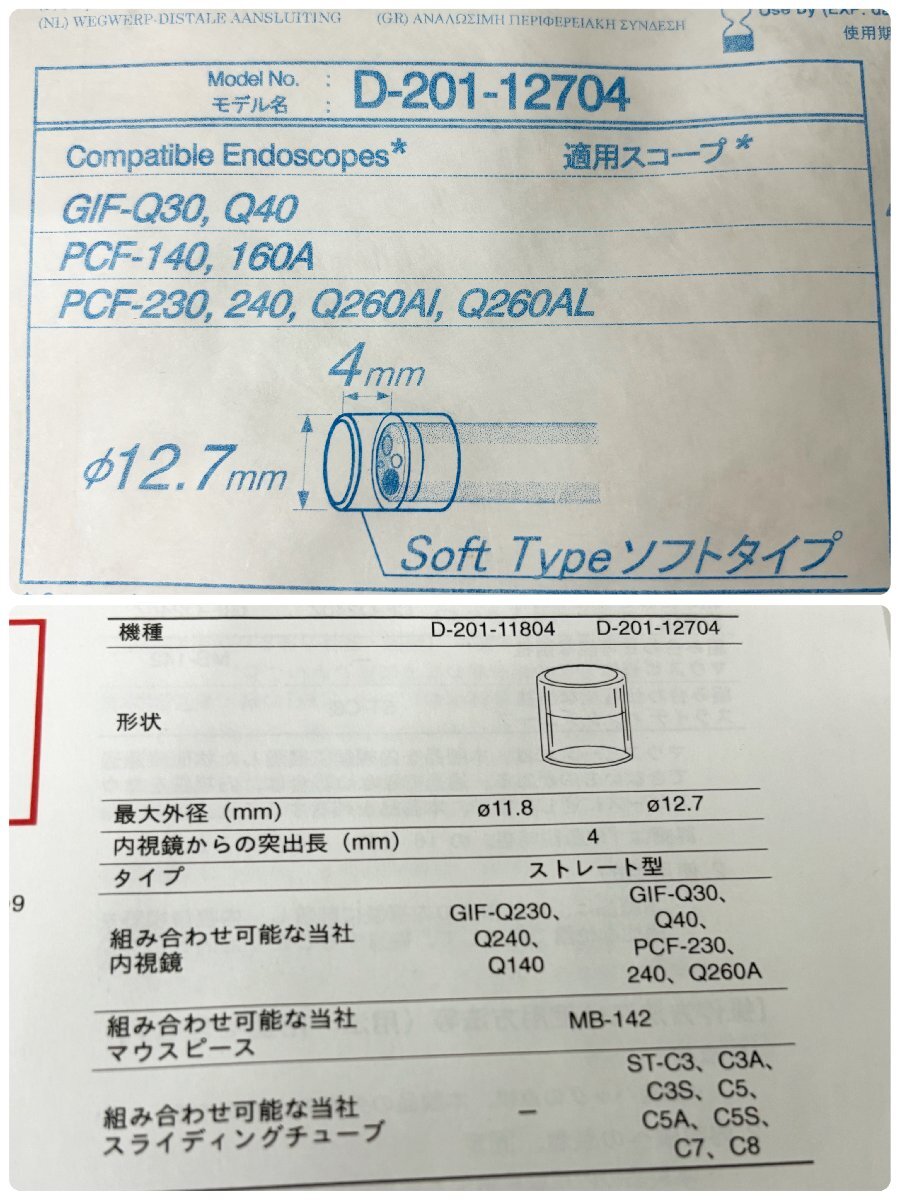 (NL) WEGWERP-DISTALE AANSLUITING (GR) ΑΝΑΛΩΣΙΜΗ ΠΕΡΙΦΕΡΕΙΑΚΗ ΣΥΝΔΕΣΗ
Use by (EXP. da
使用期
Model No. : D-201-12704
モデル名 :
Compatible Endoscopes* 適用スコープ*
GIF-Q30, Q40
PCF-140, 160A
PCF-230, 240, Q260AI, Q260AL
4mm
φ12.7mm
Soft Type ソフトタイプ
機種 D-201-11804 D-201-12704
形状
最大外径（mm） ø11.8 ø12.7
内視鏡からの突出長（mm） 4
タイプ ストレート型
組み合わせ可能な当社
内視鏡
GIF-Q230、
Q240、
Q140
GIF-Q30、
Q40、
PCF-230、
240、Q260A
組み合わせ可能な当社
マウスピース
MB-142
組み合わせ可能な当社
スライディングチューブ
－
ST-C3、C3A、
C3S、C5、
C5A、C5S、
C7、C8
9